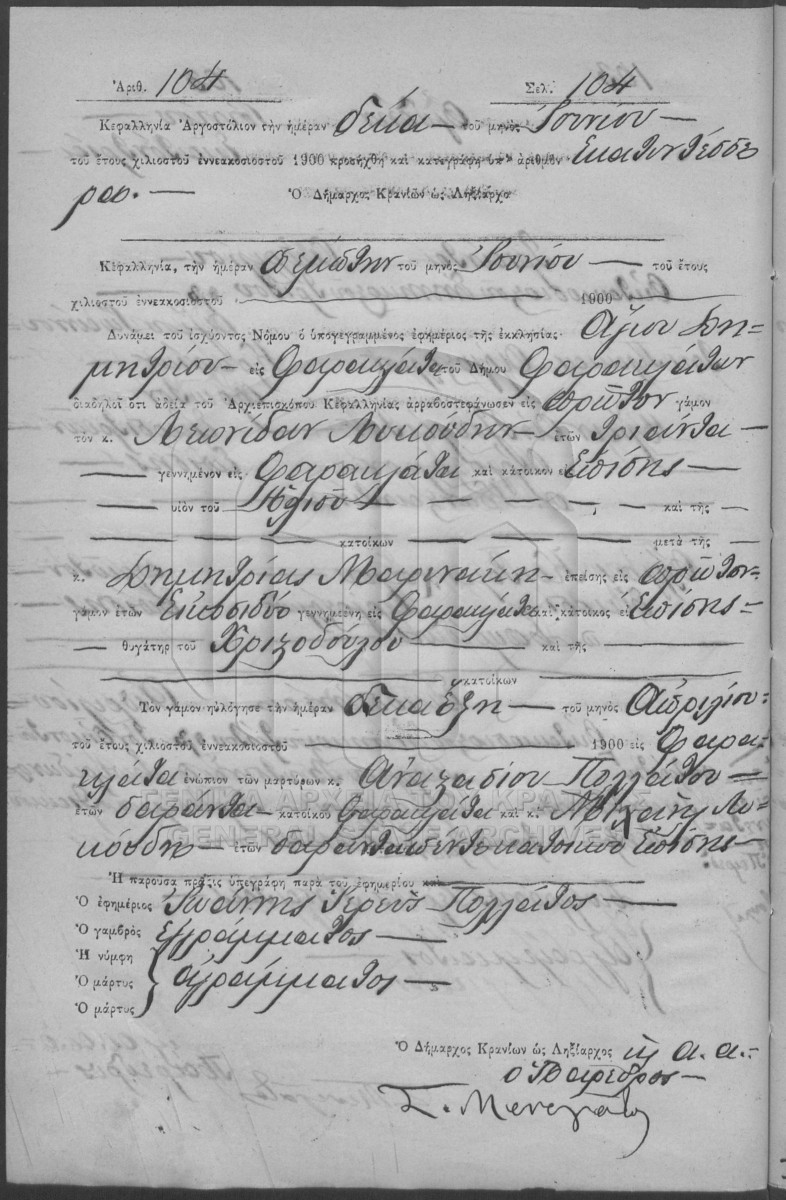 Ἀριθ. 104 Σελ. 104
Κεφαλληνία Ἀργοστόλιον τὴν ἡμέραν δέκα — τοῦ μηνὸς Ἰουνίου —
τοῦ ἔτους χιλιοστοῦ ἐννεακοσιοστοῦ 1900 προσήχθη καὶ κατεγράφη ὑπ' ἀριθμὸν Ἑκατὸν τέσσε
ρα. —
Ὁ Δήμαρχος Κρανίων ὡς Ληξίαρχο
Κεφαλληνία, τὴν ἡμέραν πέμπτην τοῦ μηνὸς Ἰουνίου — τοῦ ἔτους
χιλιοστοῦ ἐννεακοσιοστοῦ — 1900 —
Δυνάμει τοῦ ἰσχύοντος Νόμου ὁ ὑπογεγραμμένος ἐφημέριος τῆς ἐκκλησίας Ἁγίου Δη=
μητρίου — εἰς Φαρακλάτα τοῦ Δήμου Φαρακλάτων
διαδηλοῖ ὅτι ἀδείᾳ τοῦ Ἀρχιεπισκόπου Κεφαλληνίας ἀρραβοστεφάνωσεν εἰς πρῶτον γάμον
τὸν κ. Λεωνίδαν Λυκούδην — ἐτῶν τριάντα —
— γεννημένον εἰς Φαρακλάτα καὶ κάτοικον ἐπίσης —
— υἱὸν τοῦ Ἠλιοῦ — καὶ τῆς —
— κατοίκων — μετὰ τῆς —
κ. Δημητρίας Μαρινάκη — ἐπείσης εἰς πρῶτον=
γάμον ἐτῶν Εἰκοσιδύο γεννημένη εἰς Φαρακλάτα καὶ κάτοικος ἐπίσης =
— θυγάτηρ τοῦ Χριζοδούλου — καὶ τῆς —
— κατοίκων —
Τὸν γάμον ηὐλόγησε τὴν ἡμέραν δεκαέξη — τοῦ μηνὸς Ἀπριλίου=
τοῦ ἔτους χιλιοστοῦ ἐννεακοσιοστοῦ — 1900 εἰς Φαρα=
κλάτα ἐνώπιον τῶν μαρτύρων κ. Ἀναζασίου Πολλάτου =
ἐτῶν σαράντα — κατοίκου Φαρακλάτα καὶ κ. Μιχαὴλ Λυ=
κούδη — ἐτῶν σαρανταπέντε κατοίκου Ἐπίσης —
Ἡ παροῦσα πρᾶξις ὑπεγράφη παρὰ τοῦ ἐφημερίου καὶ
Ὁ ἐφημέριος Ἰωάννης Ἱερεὺς Πολλάτος —
Ὁ γαμβρὸς ἐγράμματος —
Ἡ νύμφη
Ὁ μάρτυς ἀγράμματοι —
Ὁ μάρτυς
Ὁ Δήμαρχος Κρανίων ὡς Ληξίαρχος κ α. α. =
ὁ Πάρεδρος —
ΓΕΝΙΚΑ ΑΡΧΕΙΑ ΤΟΥ ΚΡΑΤΟΥΣ
GENERAL STATE ARCHIVES